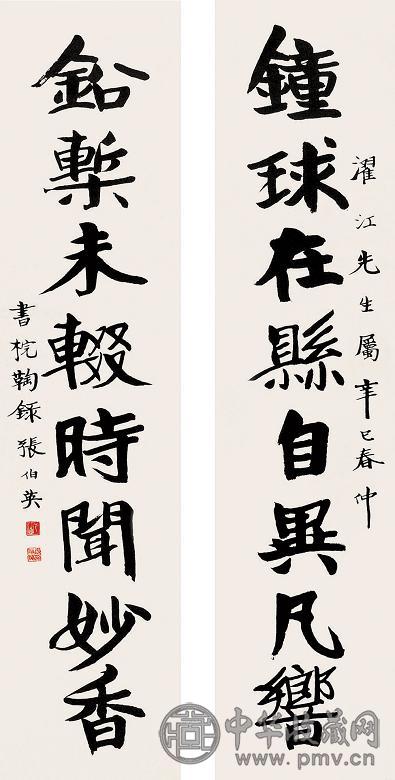 鐘球在縣自異凡響
濯江先生屬 辛巳春仲
鈆槧未輟時聞妙香
書桄鞠錄 張伯英
中华收藏网
www.pmv.cn